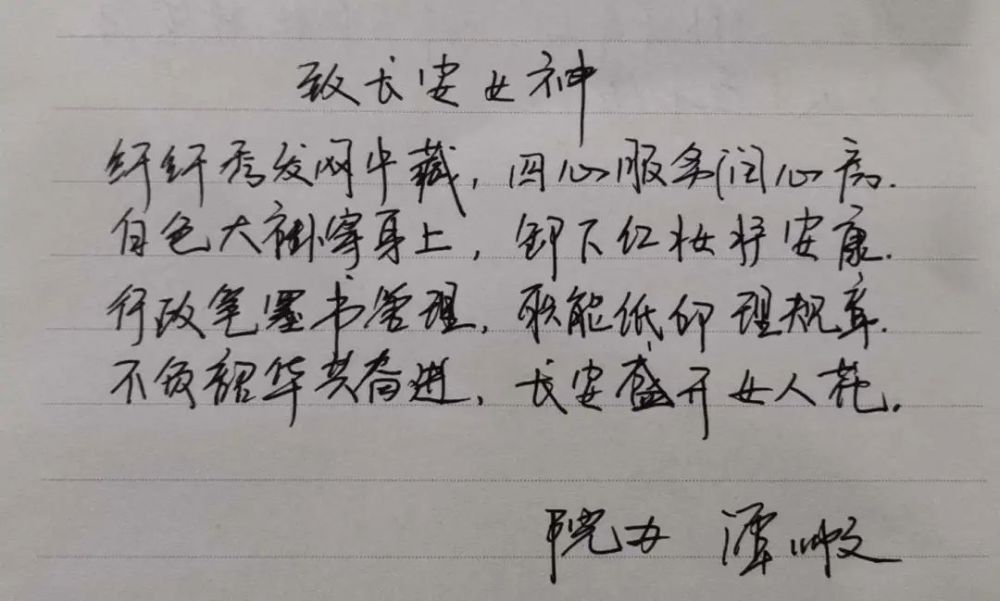 致长安女神
纤纤秀发网中藏，四心服务润心房.
白色大褂穿身上，卸下红妆护安康.
行政笔墨书管理，职能低仰理规章.
不负韶华共奋进，长安盛开女人花.
院办 潭